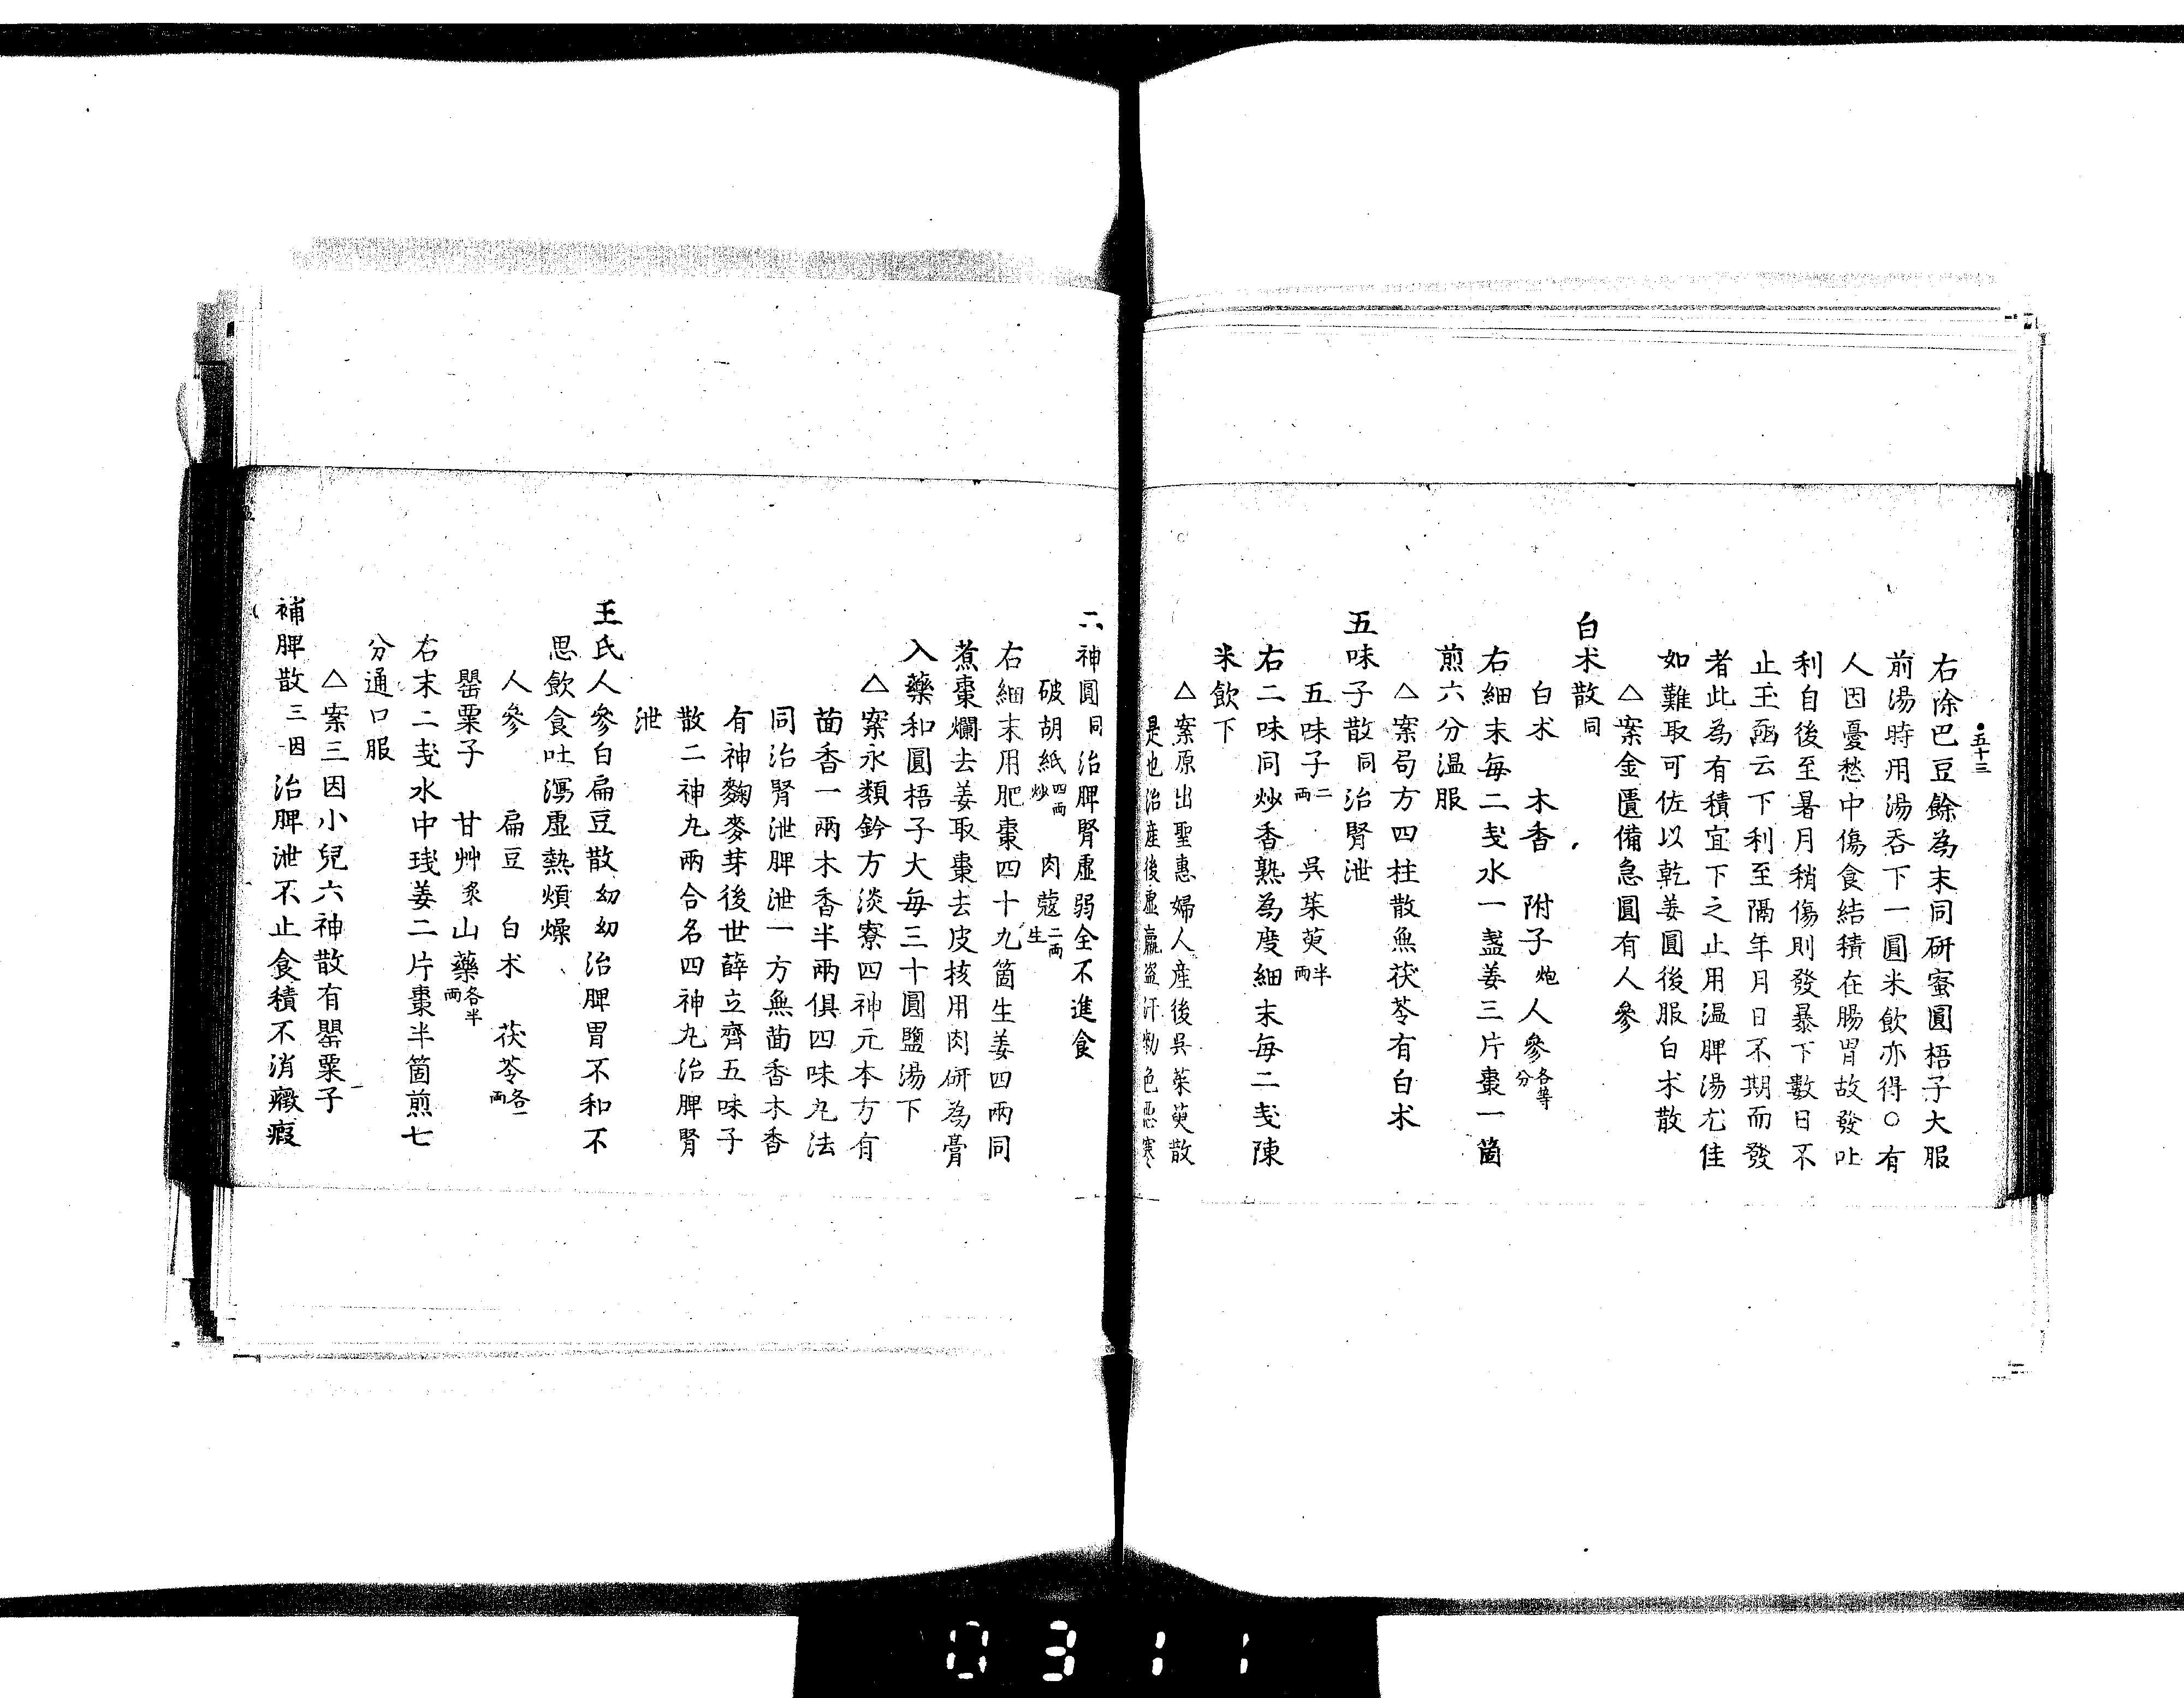 五十三
右除巴豆餘為末同研蜜圓梧子大服
前湯時用湯吞下一圓米飲亦得○有
人因憂愁中傷食結積在腸胃故發吐
利自後至暑月稍傷則發暴下數日不
止玉函云下利至隔年月日不期而發
者此為有積宜下之止用温脾湯尤佳
如難取可佐以乾姜圓後服白朮散
△案金匱備急圓有人參
白朮散同
白朮 木香 附子炮 人參各等分
右細末每二戔水一盞姜三片棗一箇
煎六分温服
△案局方四柱散無茯苓有白朮
五味子散同治腎泄
五味子二兩 呉茱萸半兩
右二味同炒香熟為度細末每二戔陳
米飲下
△案原出聖惠婦人産後呉茱萸散
是也治産後虚羸盗汗 色惡寒
二神圓同治脾腎虚弱全不進食
破胡紙四兩炒 肉蔻二兩生
右細末用肥棗四十九箇生姜四兩同
煮棗爛去姜取棗去皮核用肉研為膏
入藥和圓梧子大每三十圓鹽湯下
△案永類鈐方淡寮四神元本方有
茴香一兩木香半兩俱四味丸法
同治腎泄脾泄一方無茴香木香
有神麴麥芽後世薛立齊五味子
散二神丸兩合名四神丸治脾腎
泄
王氏人參白扁豆散幼幼治脾胃不和不
思飲食吐瀉虚熱煩燥
人參 扁豆 白朮 茯苓各一兩
罌粟子 甘艸炙 山藥各半兩
右末二戔水中琖姜二片棗半箇煎七
分通口服
△案三因小兒六神散有罌粟子
補脾散三因治脾泄不止食積不消癥瘕
0311